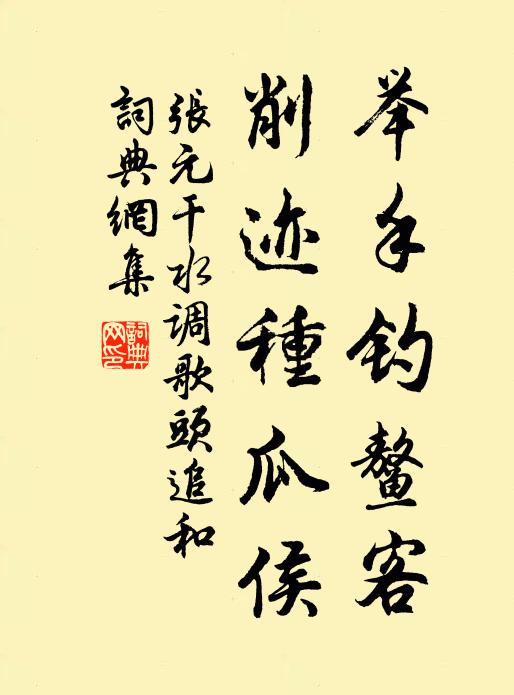 举手钓鳌客
削迹種瓜侯
張元干水调歌頭追和
詞典網集
詞典網印